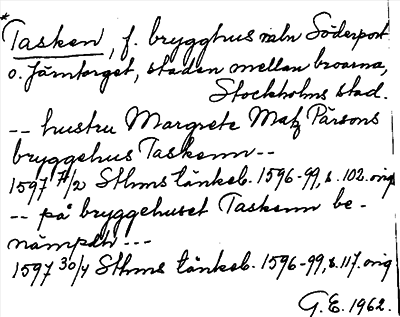 *Tasken, f. brygghus näln Söderport
o. Järntorget, staden mellan broarna,
Stockholms stad.
-- hustru Margrete Matz Pärsons
bryggehus Taskenn --
1597 7/2 Sthms tänkeb. 1596-99, s. 102. orig
-- på bryggehuset Taskenn be-
nämpdh ---
1597 30/4 Sthms tänkeb. 1596-99, s. 117. orig
G.E. 1962.